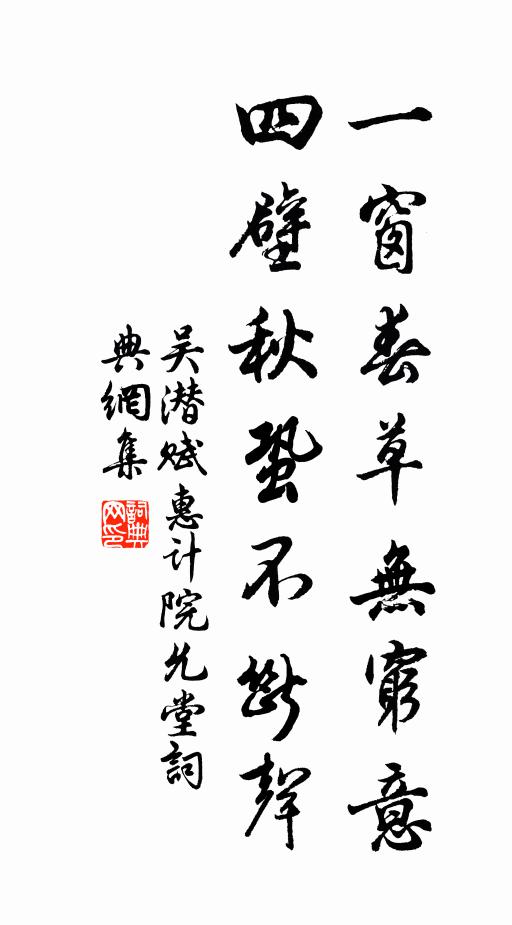 一窗春草無窮意
四壁秋蛩不斷聲
吴潛賦惠計院允堂詞
典網集
詞典网印